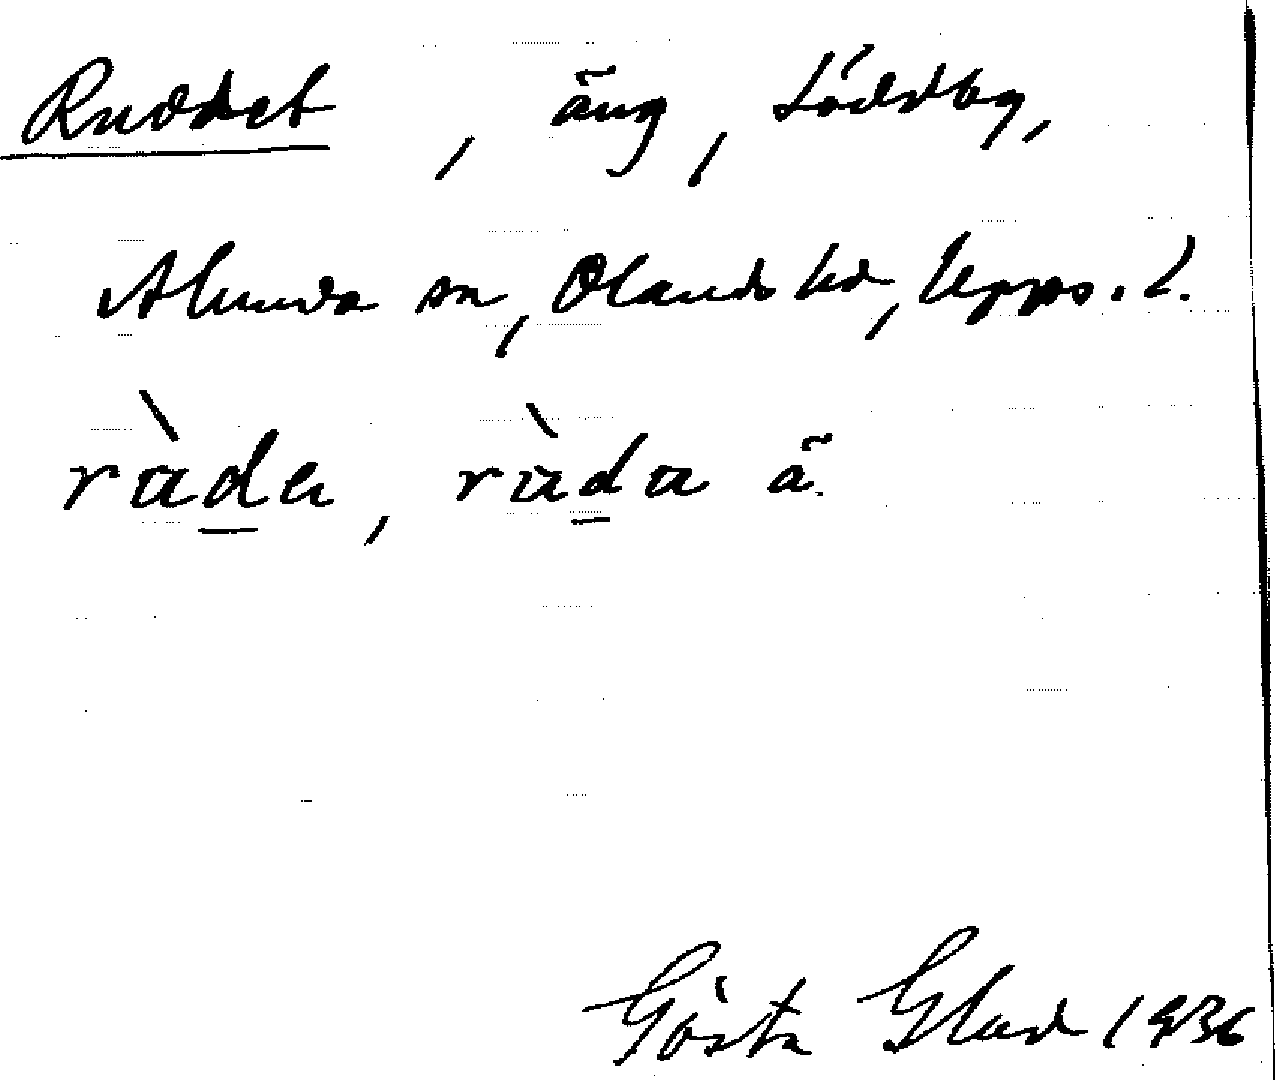 Ruddet, äng, Löddby,
Alunda sn, Olands hd, Upps. l.
ràda, ràda ä.
Gösta Glad 1936